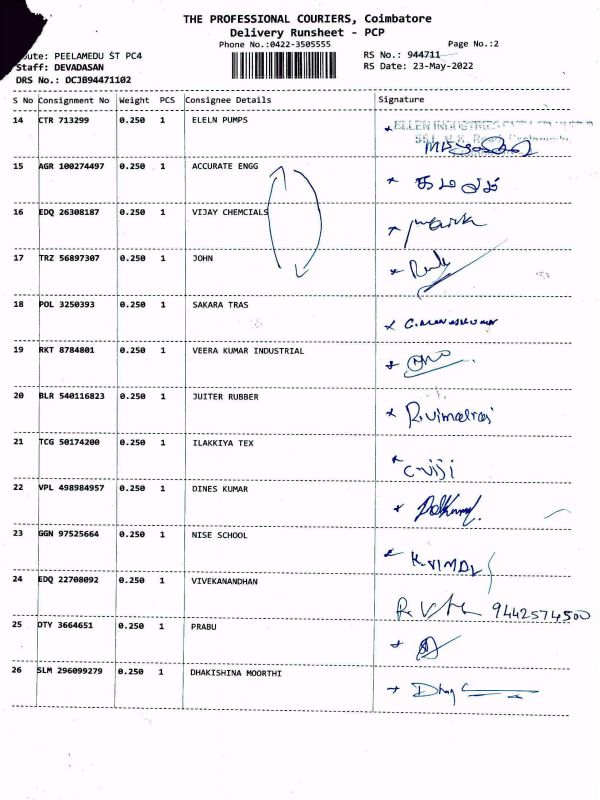 THE PROFESSIONAL COURIERS, Coimbatore
Delivery Runsheet - PCP
Phone No.:0422-3505555 Page No.:2
oute: PEELAMEDU ST PC4 RS No.: 944711
Staff: DEVADASAN RS Date: 23-May-2022
DRS No.: DCJ894471102
S No Consignment No Weight PCS Consignee Details Signature
14 CTR 713299 0.250 1 ELELN PUMPS
ELLEN INDUSTRIES
15 AGR 100274497 0.250 1 ACCURATE ENGG
16 EDQ 26308187 0.250 1 VIJAY CHEMCIALS
17 TRZ 56897307 0.250 1 JOHN
18 POL 3250393 0.250 1 SAKARA TRAS
19 RKT 8784801 0.250 1 VEERA KUMAR INDUSTRIAL
20 BLR 540116823 0.250 1 JUITER RUBBER
R.Vimalraj
21 TCG 50174200 0.250 1 ILAKKIYA TEX
C-viji
22 VPL 498984957 0.250 1 DINES KUMAR
23 GGN 97525664 0.250 1 NISE SCHOOL
K.VIMAL
24 EDQ 22708092 0.250 1 VIVEKANANDHAN
9442574500
25 OTY 3664651 0.250 1 PRABU
26 SLM 296099279 0.250 1 DHAKISHINA MOORTHI